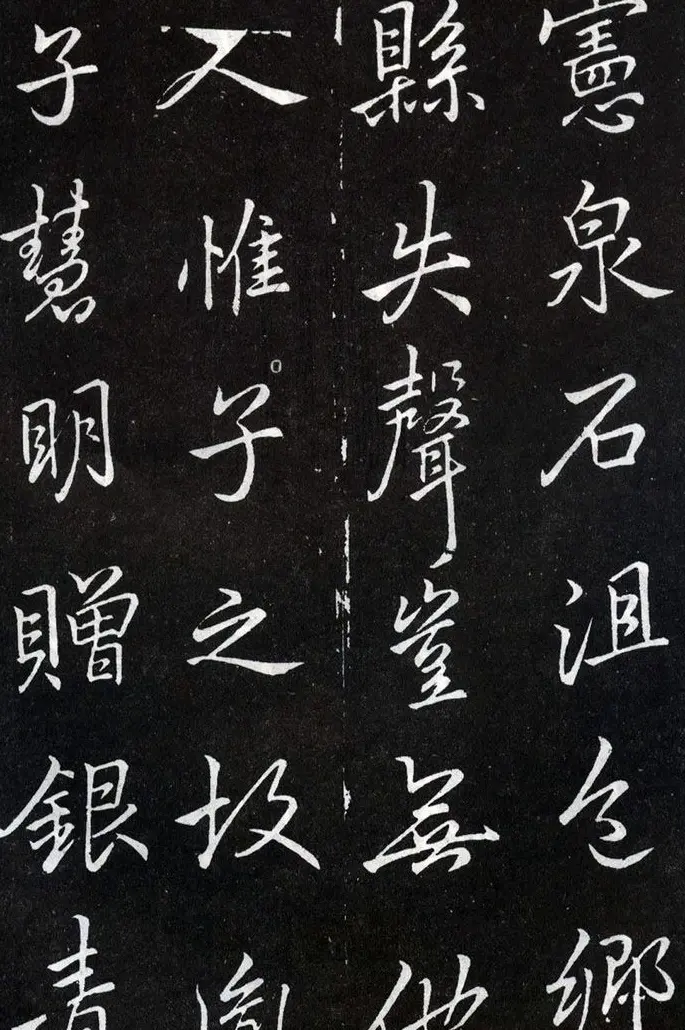 憲泉石沮色鄉
縣失聲豈無他
人惟子之故胤
子慧明贈銀青